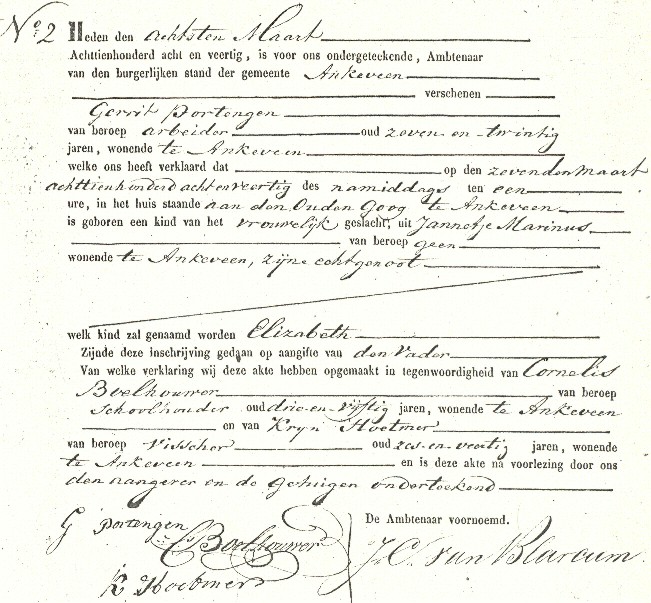 No. 2 Heden den achtsten Maart
Achttienhonderd acht en veertig, is voor ons ondergeteekende, Ambtenaar
van den burgerlijken stand der gemeente Ankeveen
verschenen
Gerrit Portengen
van beroep arbeider oud zeven-en-twintig
jaren, wonende te Ankeveen
welke ons heeft verklaard dat op den zevenden Maart
achttienhonderd acht en veertig des namiddags ten een
ure, in het huis staande aan den Ouden Goog te Ankeveen
is geboren een kind van het vrouwelijk geslacht, uit Jannetje Marinus
van beroep geen
wonende te Ankeveen, zijne echtgenoot
welk kind zal genaamd worden Elizabeth
Zijnde deze inschrijving gedaan op aangifte van den Vader
Van welke verklaring wij deze akte hebben opgemaakt in tegenwoordigheid van Cornelis
Boelhouwer van beroep
Schoolhouder oud drie-en-vijftig jaren, wonende te Ankeveen
en van Kryn Hoetmer
van beroep visscher oud zes-en-veertig jaren, wonende
te Ankeveen en is deze akte na voorlezing door ons
den aangever en de getuigen onderteekend
G Portengen
C Boelhouwer
K Hoetmer
De Ambtenaar voornoemd.
J. C. van Blarcum